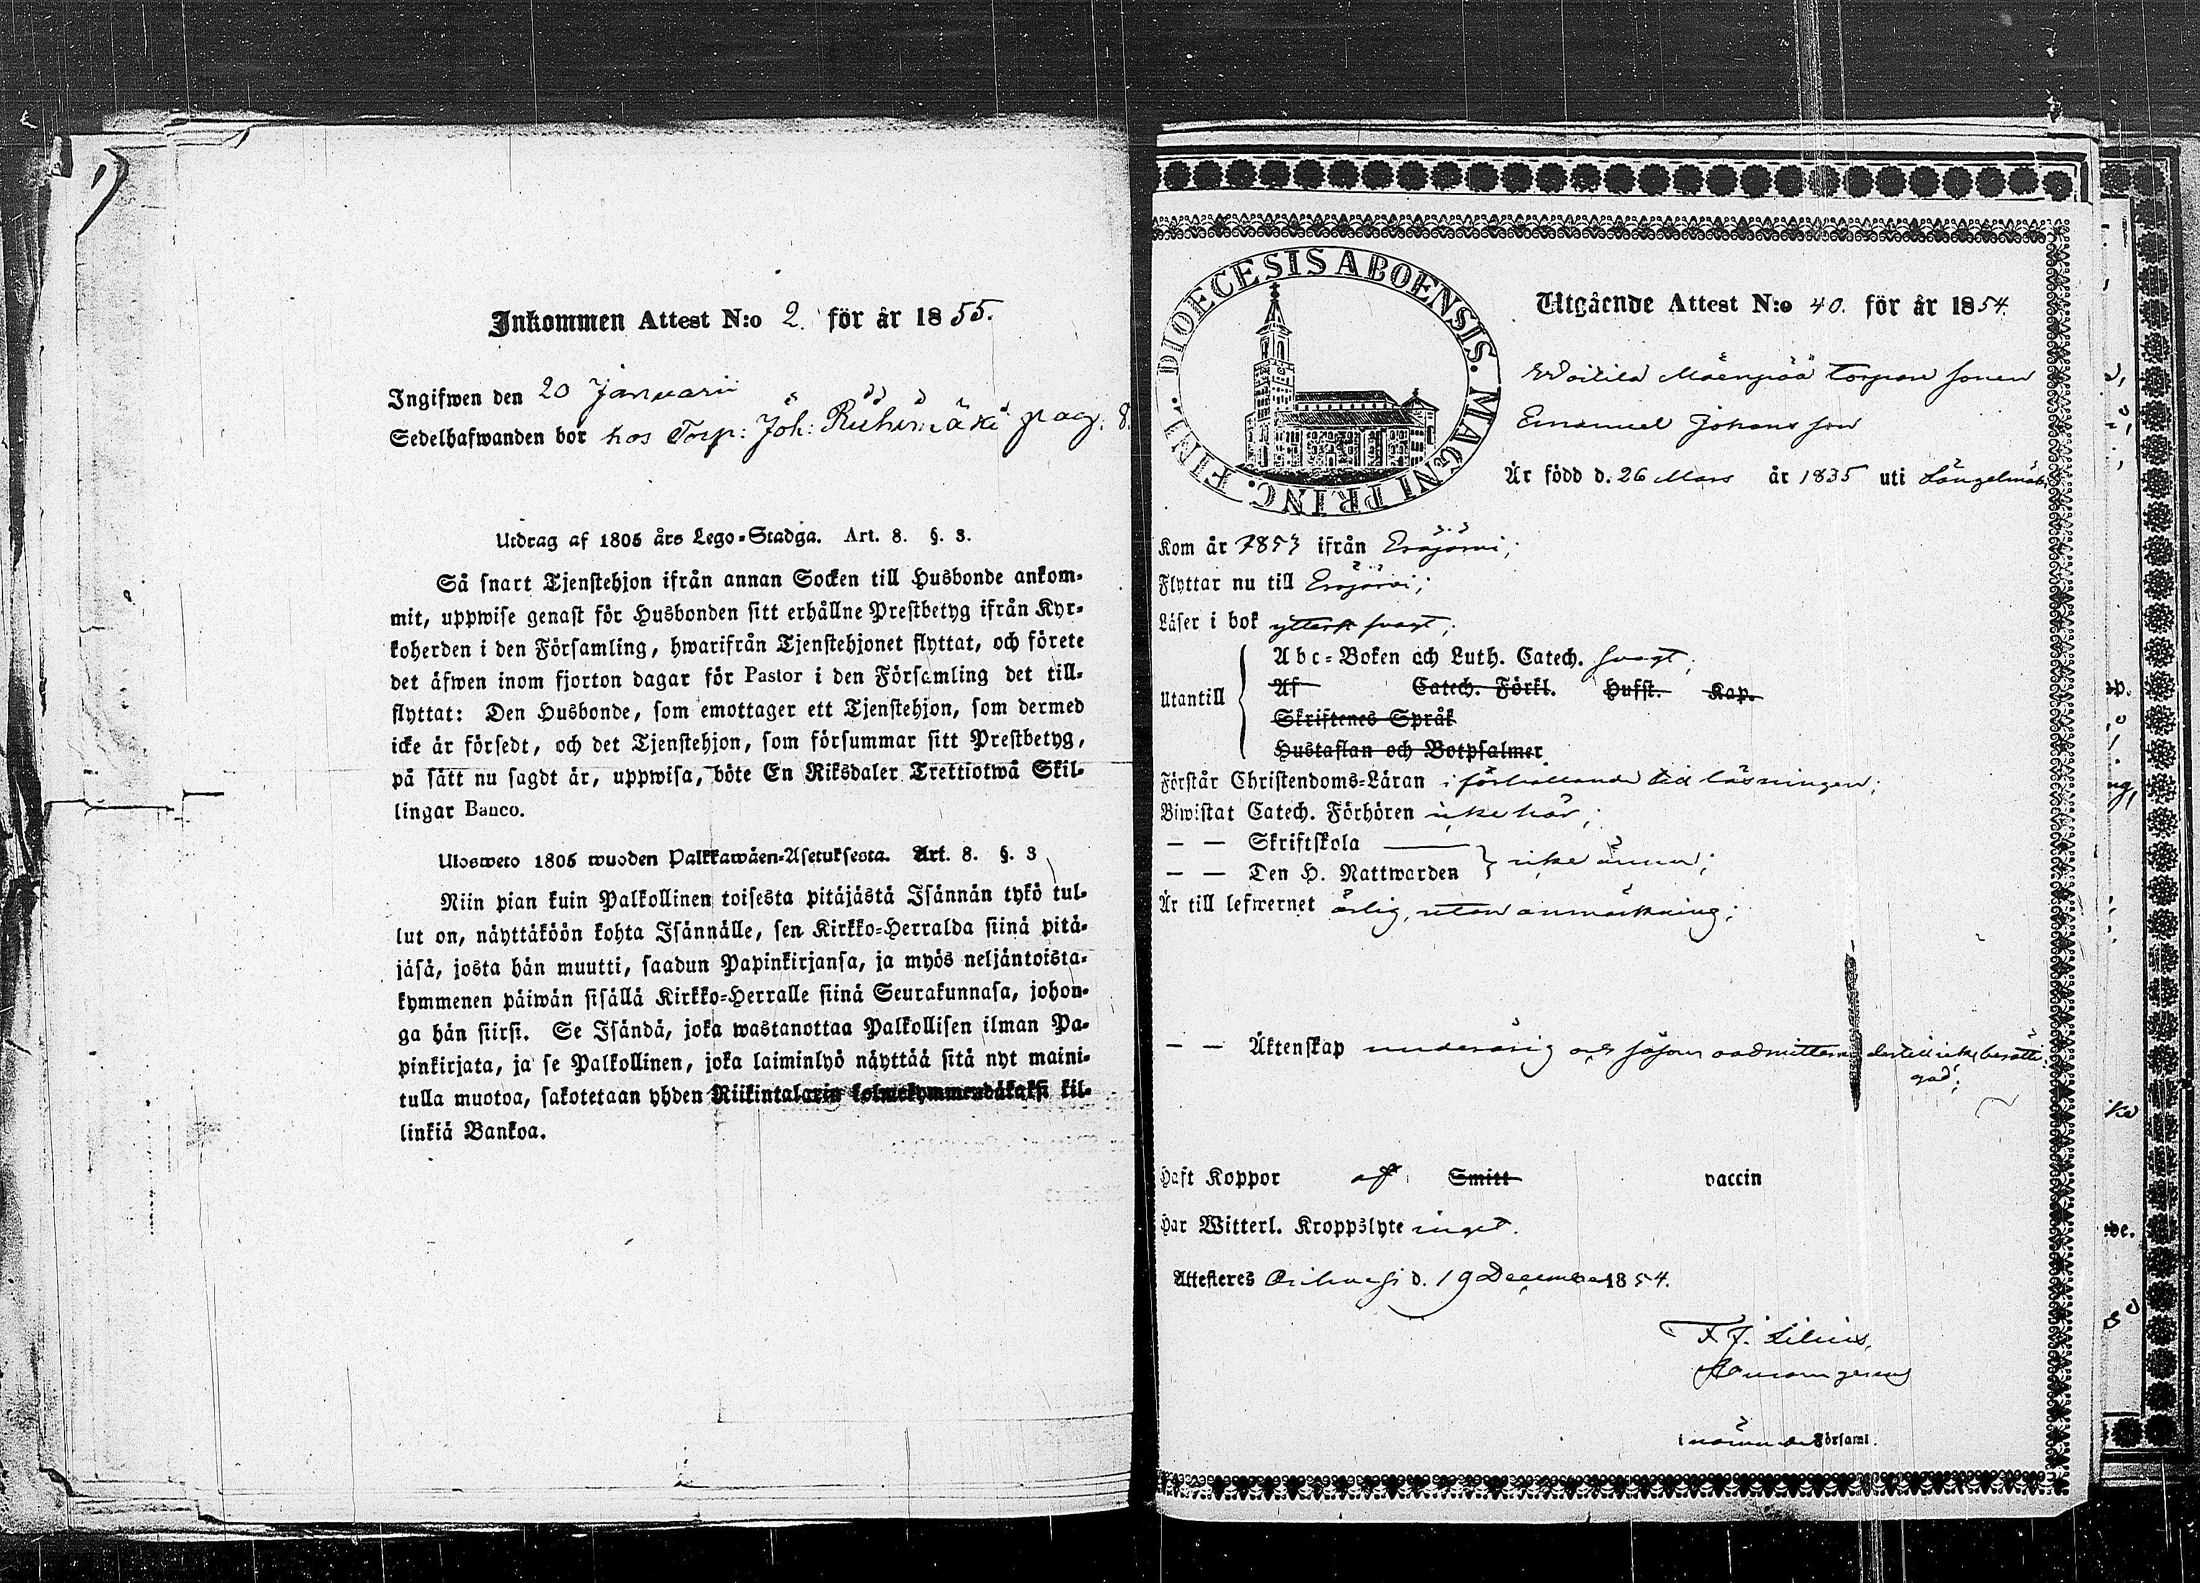 Inkommen Attest N:o 2. för år 1855.
Ingifwen den 20 Januarii
Sedelhafwanden bor hos Torp: Joh: Riihimäki pag. 8
Utdrag af 1805 års Lego-Stadga. Art. 8. §. 3.
Så snart Tjenstehjon ifrån annan Socken till Husbonde ankom-
mit, uppwise genast för Husbonden sitt erhållne Prestbetyg ifrån Kyr-
koherden i den Församling, hwarifrån Tjenstehjonet flyttat, och förete
det äfwen inom fjorton dagar för Pastor i den Församling det till-
flyttat: Den Husbonde, som emottager ett Tjenstehjon, som dermed
icke är försedt, och det Tjenstehjon, som försummar sitt Prestbetyg,
på sätt nu sagdt är, uppwisa, böte En Riksdaler Trettiotwå Skil-
lingar Banco.
Ulosweto 1805 wuoden Palkkawäen-Asetuksesta. Art. 8. §. 3
Niin pian kuin Palkollinen toisesta pitäjästä Isännän tykö tul-
lut on, näyttäköön kohta Isännälle, sen Kirkko-Herralda siinä pitä-
jäsä, josta hän muutti, saadun Papinkirjansa, ja myös neljäntoista-
kymmenen päiwän sisällä Kirkko-Herralle siinä Seurakunnasa, johon-
ga hän siirsi. Se Isändä, joka wastanottaa Palkollisen ilman Pa-
pinkirjata, ja se Palkollinen, joka laiminlyö näyttää sitä nyt maini-
tulla muotoa, sakotetaan yhden Riikintalarin kolmekymmendäkaksi kil-
linkiä Bankoa.
DIOECESIS ABOENSIS. MAGNI PRINC. FINL.
Utgående Attest N:o 40. för år 1854.
Woitila Mäenpää torpare sonen
Emanuel Johansson
Är född d. 26 Mars år 1835 uti Längelmäki
Kom år 1853 ifrån Eräjärwi;
Flyttar nu till Eräjärwi;
Läser i bok ytterst swagt;
Utantill
Abc-Boken och Luth. Catech. swagt;
Af Catech. Förkl. Hufst. Kap.
Skriftenes Språk
Hustaflan och Botpsalmer
Förstår Christendoms-Läran i förhållande till läsningen;
Biwistat Catech. Förhören icke här;
— — Skriftskola
— — Den H. Nattwarden } icke ännu;
Är till lefwernet ärlig, utan anmärkning;
— — Äktenskap underårig och såsom oadmitterad dertill icke berätti-
gad;
Haft Koppor af Smitt vaccin
Har Witterl. Kroppslyte inget.
Attesteres Orihwesi d. 19 December 1854.
F. J. Lilius,
i nämnde Församl.